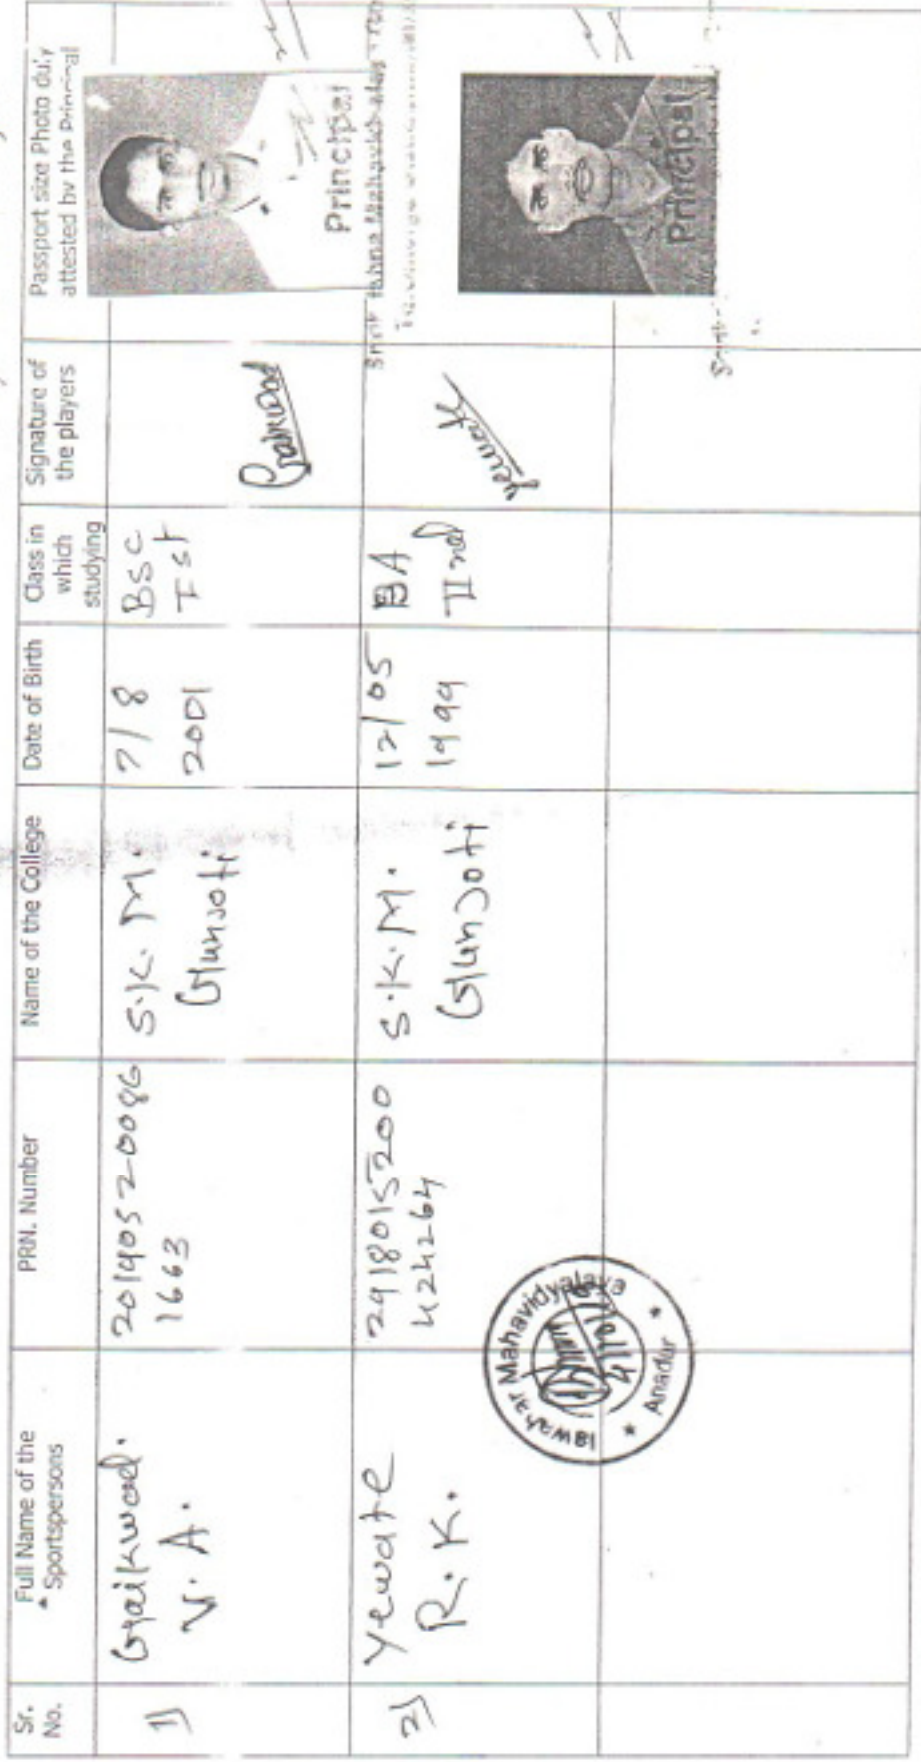 Sr.
No.
Full Name of the
Sportspersons
PRN. Number
Name of the College
Date of Birth
Class in
which
studying
Signature of
the players
Passport size Photo duly
attested by the Principal
1)
Gaikwad.
V. A.
20190520086
1663
S.K. M.
Gunjoti
7/8
2001
BSC
Ist
Gaikwad
Principal
2)
Yewate
R. K.
2918015200
424264
S.K.M.
Gunjoti
12/05
1999
BA
IInd
Yewate
Principal
Jawahar Mahavidyalaya
Anadur